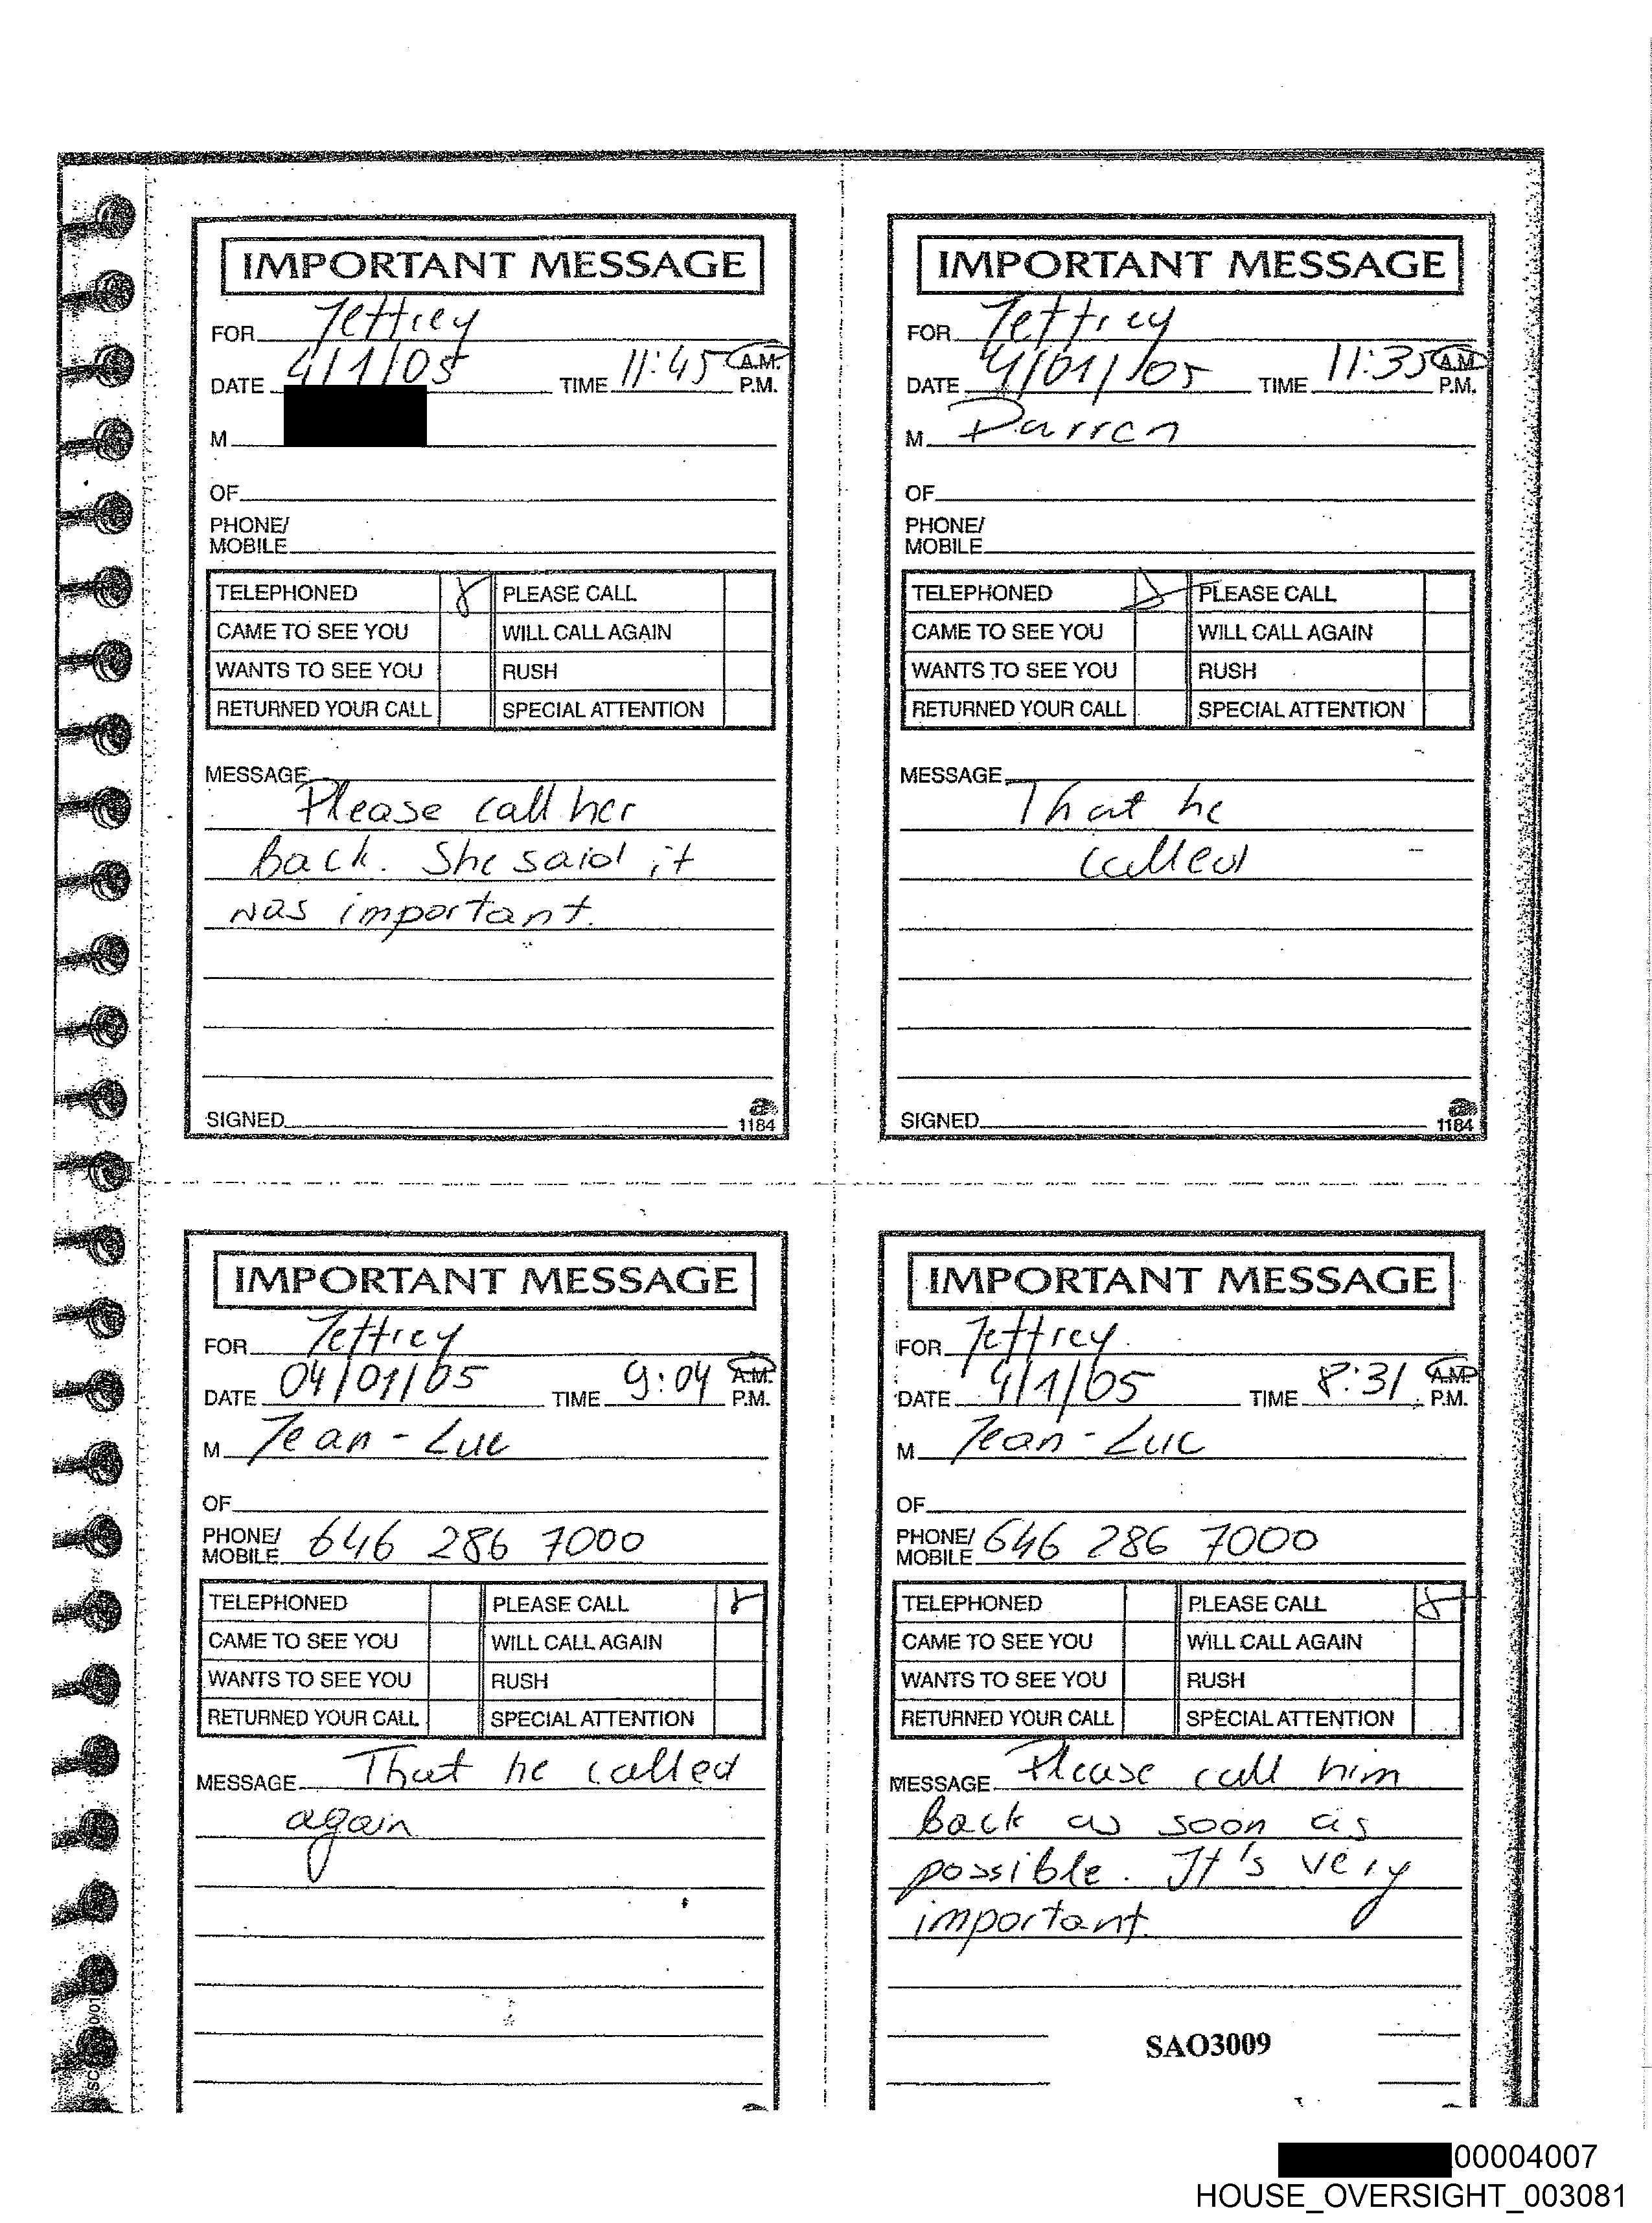 IMPORTANT MESSAGE
FOR Jeffrey
DATE 4/1/05 TIME 11:45 A.M. P.M.
M
OF
PHONE/
MOBILE
TELEPHONED PLEASE CALL
CAME TO SEE YOU WILL CALL AGAIN
WANTS TO SEE YOU RUSH
RETURNED YOUR CALL SPECIAL ATTENTION
MESSAGE
Please call her
back. She said it
was important.
SIGNED
1184
IMPORTANT MESSAGE
FOR Jeffrey
DATE 4/01/05 TIME 11:35 A.M. P.M.
M Darren
OF
PHONE/
MOBILE
TELEPHONED PLEASE CALL
CAME TO SEE YOU WILL CALL AGAIN
WANTS TO SEE YOU RUSH
RETURNED YOUR CALL SPECIAL ATTENTION
MESSAGE
That he
called
SIGNED
1184
IMPORTANT MESSAGE
FOR Jeffrey
DATE 04/01/05 TIME 9:04 A.M. P.M.
M Jean-Luc
OF
PHONE/
MOBILE 646 286 7000
TELEPHONED PLEASE CALL
CAME TO SEE YOU WILL CALL AGAIN
WANTS TO SEE YOU RUSH
RETURNED YOUR CALL SPECIAL ATTENTION
MESSAGE That he called
again
IMPORTANT MESSAGE
FOR Jeffrey
DATE 4/1/05 TIME 8:31 A.M. P.M.
M Jean-Luc
OF
PHONE/
MOBILE 646 286 7000
TELEPHONED PLEASE CALL
CAME TO SEE YOU WILL CALL AGAIN
WANTS TO SEE YOU RUSH
RETURNED YOUR CALL SPECIAL ATTENTION
MESSAGE Please call him
back as soon as
possible. It's very
important.
SAO3009
00004007
HOUSE_OVERSIGHT_003081